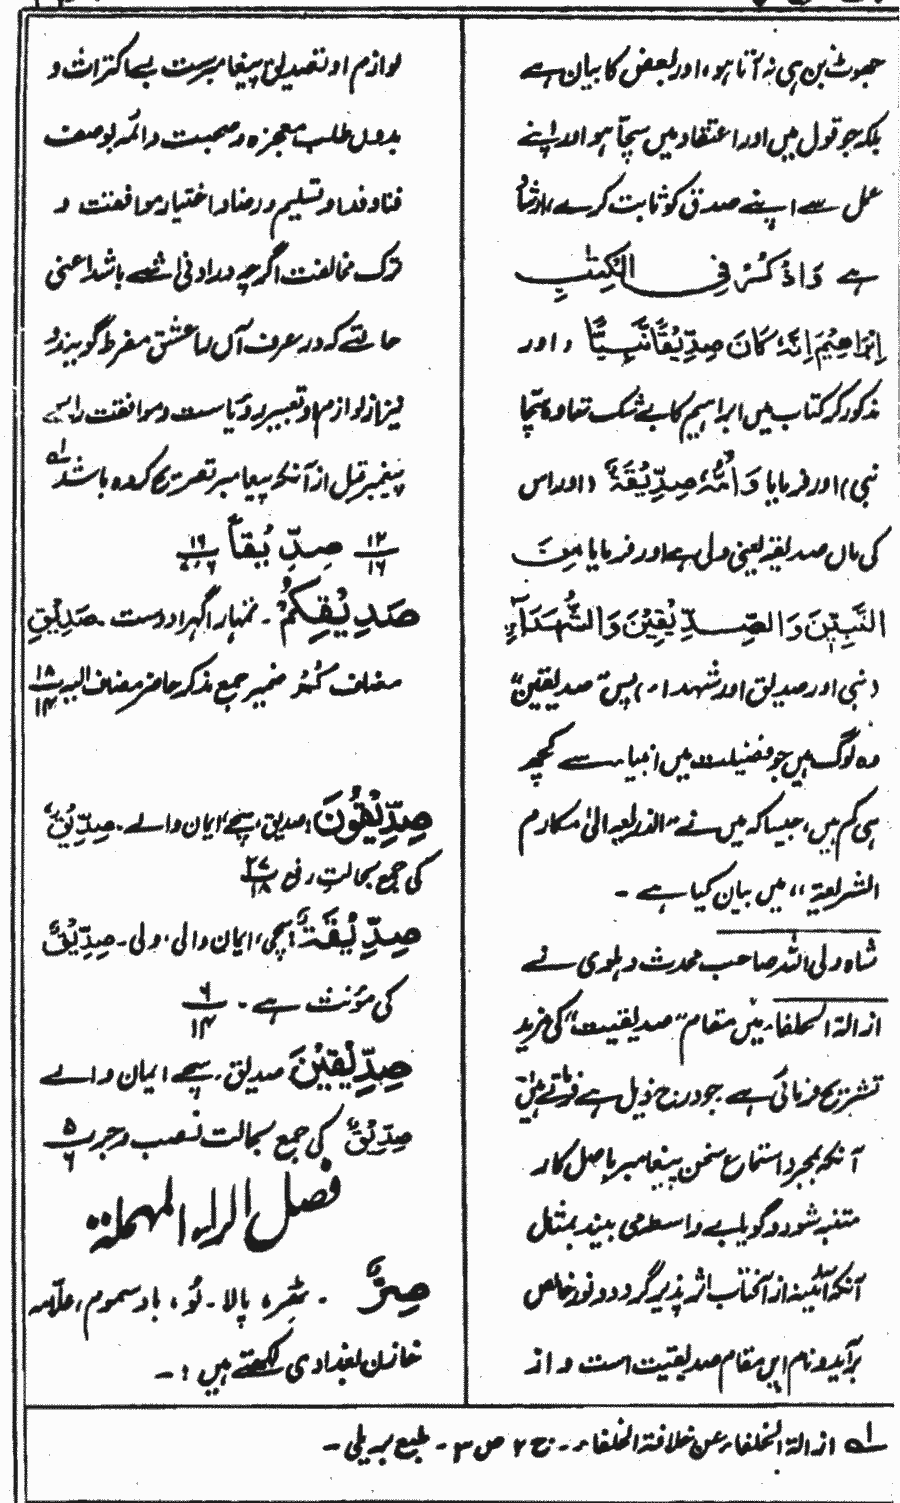 جھوٹ بن ہی نہ آتا ہو، اور بعض کا بیان ہے
بلکہ جو قول میں اور اعتقاد میں سچّا ہو اور اپنے
عمل سے اپنے صدق کو ثابت کرے، ارشاد
ہے وَاذْكُرْ فِي الْكِتٰبِ
اِبْرَاهِيْمَ اِنَّهٗ كَانَ صِدِّيْقًا نَّبِيًّا (اور
مذکور کر کتاب میں ابراہیم کا بے شک تھا وہ سچّا
نبی) اور فرمایا وَاُمُّهٗ صِدِّيْقَةٌ (اور اس
کی ماں صدیقہ یعنی ولی ہے) اور فرمایا مِنَ
النَّبِيّٖنَ وَالصِّدِّيْقِيْنَ وَالشُّهَدَآءِ
(نبی اور صدیق اور شہداء) پس "صدیقین"
وہ لوگ ہیں جو فضیلت میں انبیاء سے کچھ
ہی کم ہیں، جیسا کہ میں نے "الذریعہ الیٰ مکارم
الشریعۃ" میں بیان کیا ہے ۔
شاہ ولی اللہ صاحب محدث دہلوی نے
ازالۃ الخلفاء میں مقام "صدیقیت" کی مزید
تشریح فرمائی ہے جو درج ذیل ہے فرماتے ہیں
آنکہ بمجرد استماع سخن پیغامبر باصل کار
متنبہ شود و گویا بے واسطہ می بیند بمثل
آنکہ آئینہ از آفتاب اثر پذیر گردد و نور خالص
برآید و نام این مقام صدیقیت است و از
لوازم او تصدیق پیغامبرست بے اکتراث و
بدوں طلب معجزہ و صحبت دائمہ بوصف
فنا و فدا و تسلیم و رضا و اختیار موافقت و
ترک مخالفت اگرچہ در ادنیٰ شئے باشد اعنی
حالتے کہ در عرف آں را عشق مفرط گویند و
نیز از لوازم او تعبیر رؤیا ست و موافقت رائے
پیغمبر قبل از آنکہ پیغامبر تصریح کردہ باشد لہ
۱۲/۱۶ صِدِّيْقًا ۱۶/۶،۷
صَدِيْقِكُمْ۔ تمہارا گہرا دوست ۔ صَدِيْقِ
مضاف كُمْ ضمیر جمع مذکر حاضر مضاف الیہ ۱۸/۱۴
صِدِّيْقُوْنَ: صدیق، سچے ایمان والے۔ صِدِّيْقٌ
کی جمع بحالتِ رفع ۲۷/۱۸
صِدِّيْقَةٌ: سچی، ایمان والی، ولی۔ صِدِّيْقٌ
کی مؤنث ہے ۔ ۶/۱۴
صِدِّيْقِيْنَ صدیق ۔ سچے ایمان والے
صِدِّيْقٌ کی جمع بحالت نصب و جر ۵/۶
فصل الراء المہملۃ
صِرٌّ ۔ ٹھر، پالا ۔ لُو ، بادِ سموم، علّامہ
خازن بغدادی لکھتے ہیں :۔
لہ ازالۃ الخلفاء عن خلافۃ الخلفاء ۔ ج ۲ ص ۳ ۔ طبع بریلی ۔